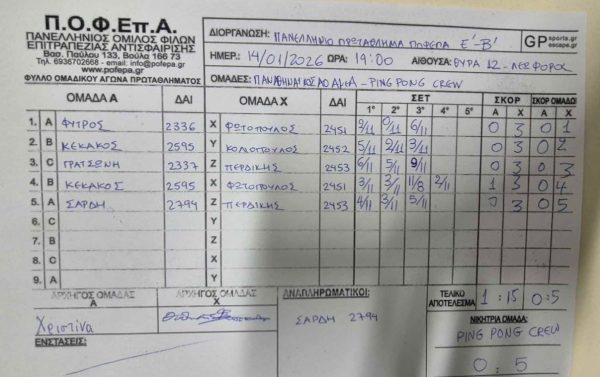 Π.Ο.Φ.Επ.Α.
ΠΑΝΕΛΛΗΝΙΟΣ ΟΜΙΛΟΣ ΦΙΛΩΝ
ΕΠΙΤΡΑΠΕΖΙΑΣ ΑΝΤΙΣΦΑΙΡΙΣΗΣ
Βασ. Παύλου 133, Βούλα 166 73
Τηλ. 6936702668 - info@pofepa.gr
www.pofepa.gr
ΦΥΛΛΟ ΟΜΑΔΙΚΟΥ ΑΓΩΝΑ ΠΡΩΤΑΘΛΗΜΑΤΟΣ
ΔΙΟΡΓΑΝΩΣΗ: ΠΑΝΕΛΛΗΝΙΟ ΠΡΩΤΑΘΛΗΜΑ ΠΟΦΕΠΑ Ε'-Β'
GP sports.gr escape.gr
ΗΜΕΡ.: 14/01/2026 ΩΡΑ: 19:00 ΑΙΘΟΥΣΑ: ΘΥΡΑ 12-ΛΕΩΦΟΡΟΣ
ΟΜΑΔΕΣ: ΠΑΝΑΘΗΝΑΙΚΟΣ ΑΟ ΑΜΕΑ - PING PONG CREW
ΟΜΑΔΑ Α ΔΑΙ ΟΜΑΔΑ Χ ΔΑΙ ΣΕΤ ΣΚΟΡ ΣΚΟΡ ΟΜΑΔΩΝ
1° 2° 3° 4° 5° Α Χ Α Χ
1. Α ΦΥΤΡΟΣ 2336 Χ ΦΩΤΟΠΟΥΛΟΣ 2451 9/11 0/11 6/11 0 3 0 1
2. Β ΚΕΚΑΚΟΣ 2595 Υ ΚΟΛΙΟΠΟΥΛΟΣ 2452 5/11 2/11 3/11 0 3 0 2
3. C ΓΡΑΤΣΩΝΗ 2337 Ζ ΠΕΡΔΙΚΗΣ 2453 6/11 5/11 9/11 0 3 0 3
4. Β ΚΕΚΑΚΟΣ 2595 Χ ΦΩΤΟΠΟΥΛΟΣ 2451 3/11 3/11 11/8 2/11 1 3 0 4
5. Α ΣΑΡΔΗ 2794 Ζ ΠΕΡΔΙΚΗΣ 2453 4/11 3/11 5/11 0 3 0 5
6. C Υ
7. Β Ζ
8. C Χ
9. Α Υ
ΑΡΧΗΓΟΣ ΟΜΑΔΑΣ Α
ΑΡΧΗΓΟΣ ΟΜΑΔΑΣ Χ
ΑΝΑΠΛΗΡΩΜΑΤΙΚΟΙ:
ΤΕΛΙΚΟ ΑΠΟΤΕΛΕΣΜΑ 1:15 0:5
Χριστίνα
ΣΑΡΔΗ 2794
ΝΙΚΗΤΡΙΑ ΟΜΑΔΑ:
PING PONG CREW
ΕΝΣΤΑΣΕΙΣ:
0:5